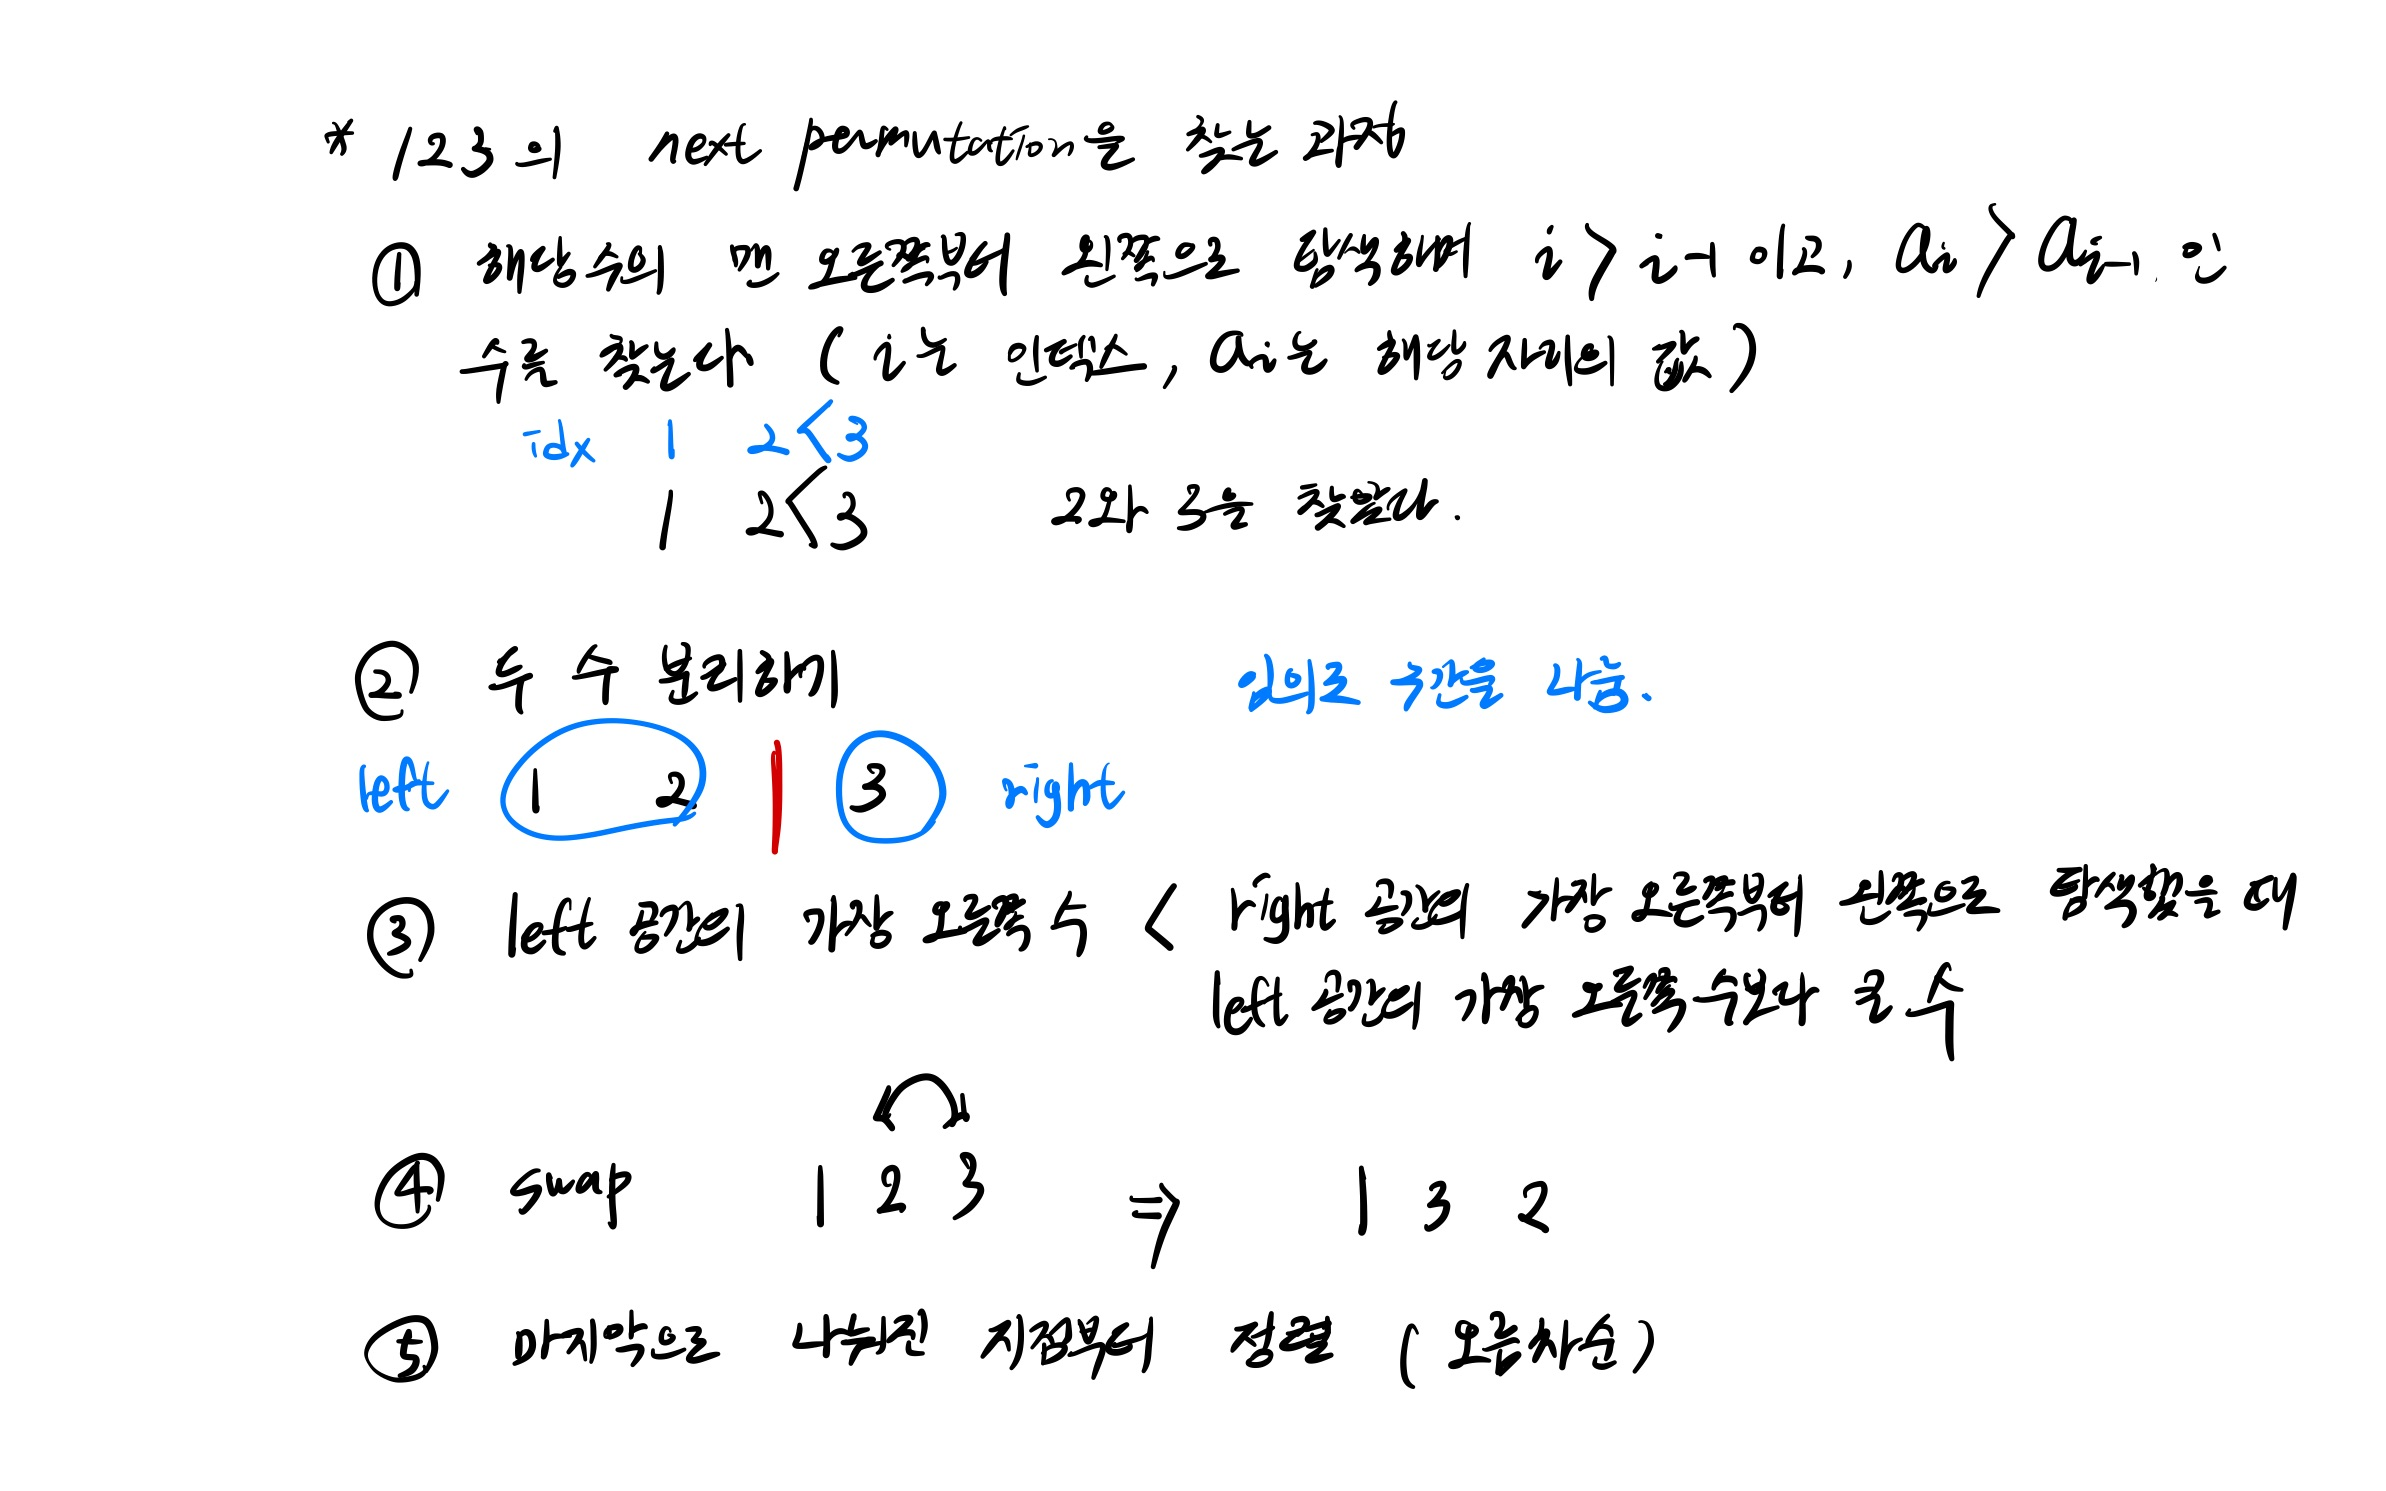 * 123의 next permutation을 찾는 과정
① 해당 수의 맨 오른쪽부터 왼쪽으로 탐색하며 i > i-1 이고, ai > ai-1 인
수를 찾는다 ( i는 인덱스, ai는 해당 자리의 값 )
idx 1 2 < 3
1 2 < 3 2와 3을 찾았다.
② 두 수 분리하기 임의로 구간을 나눔.
left 1 2 | 3 right
③ left 공간의 가장 오른쪽 수 < right 공간의 가장 오른쪽부터 왼쪽으로 탐색했을 때
left 공간의 가장 오른쪽 수보다 큰 수
④ swap 1 2 3 ⇒ 1 3 2
⑤ 마지막으로 나눠진 지점부터 정렬 ( 오름차순 )